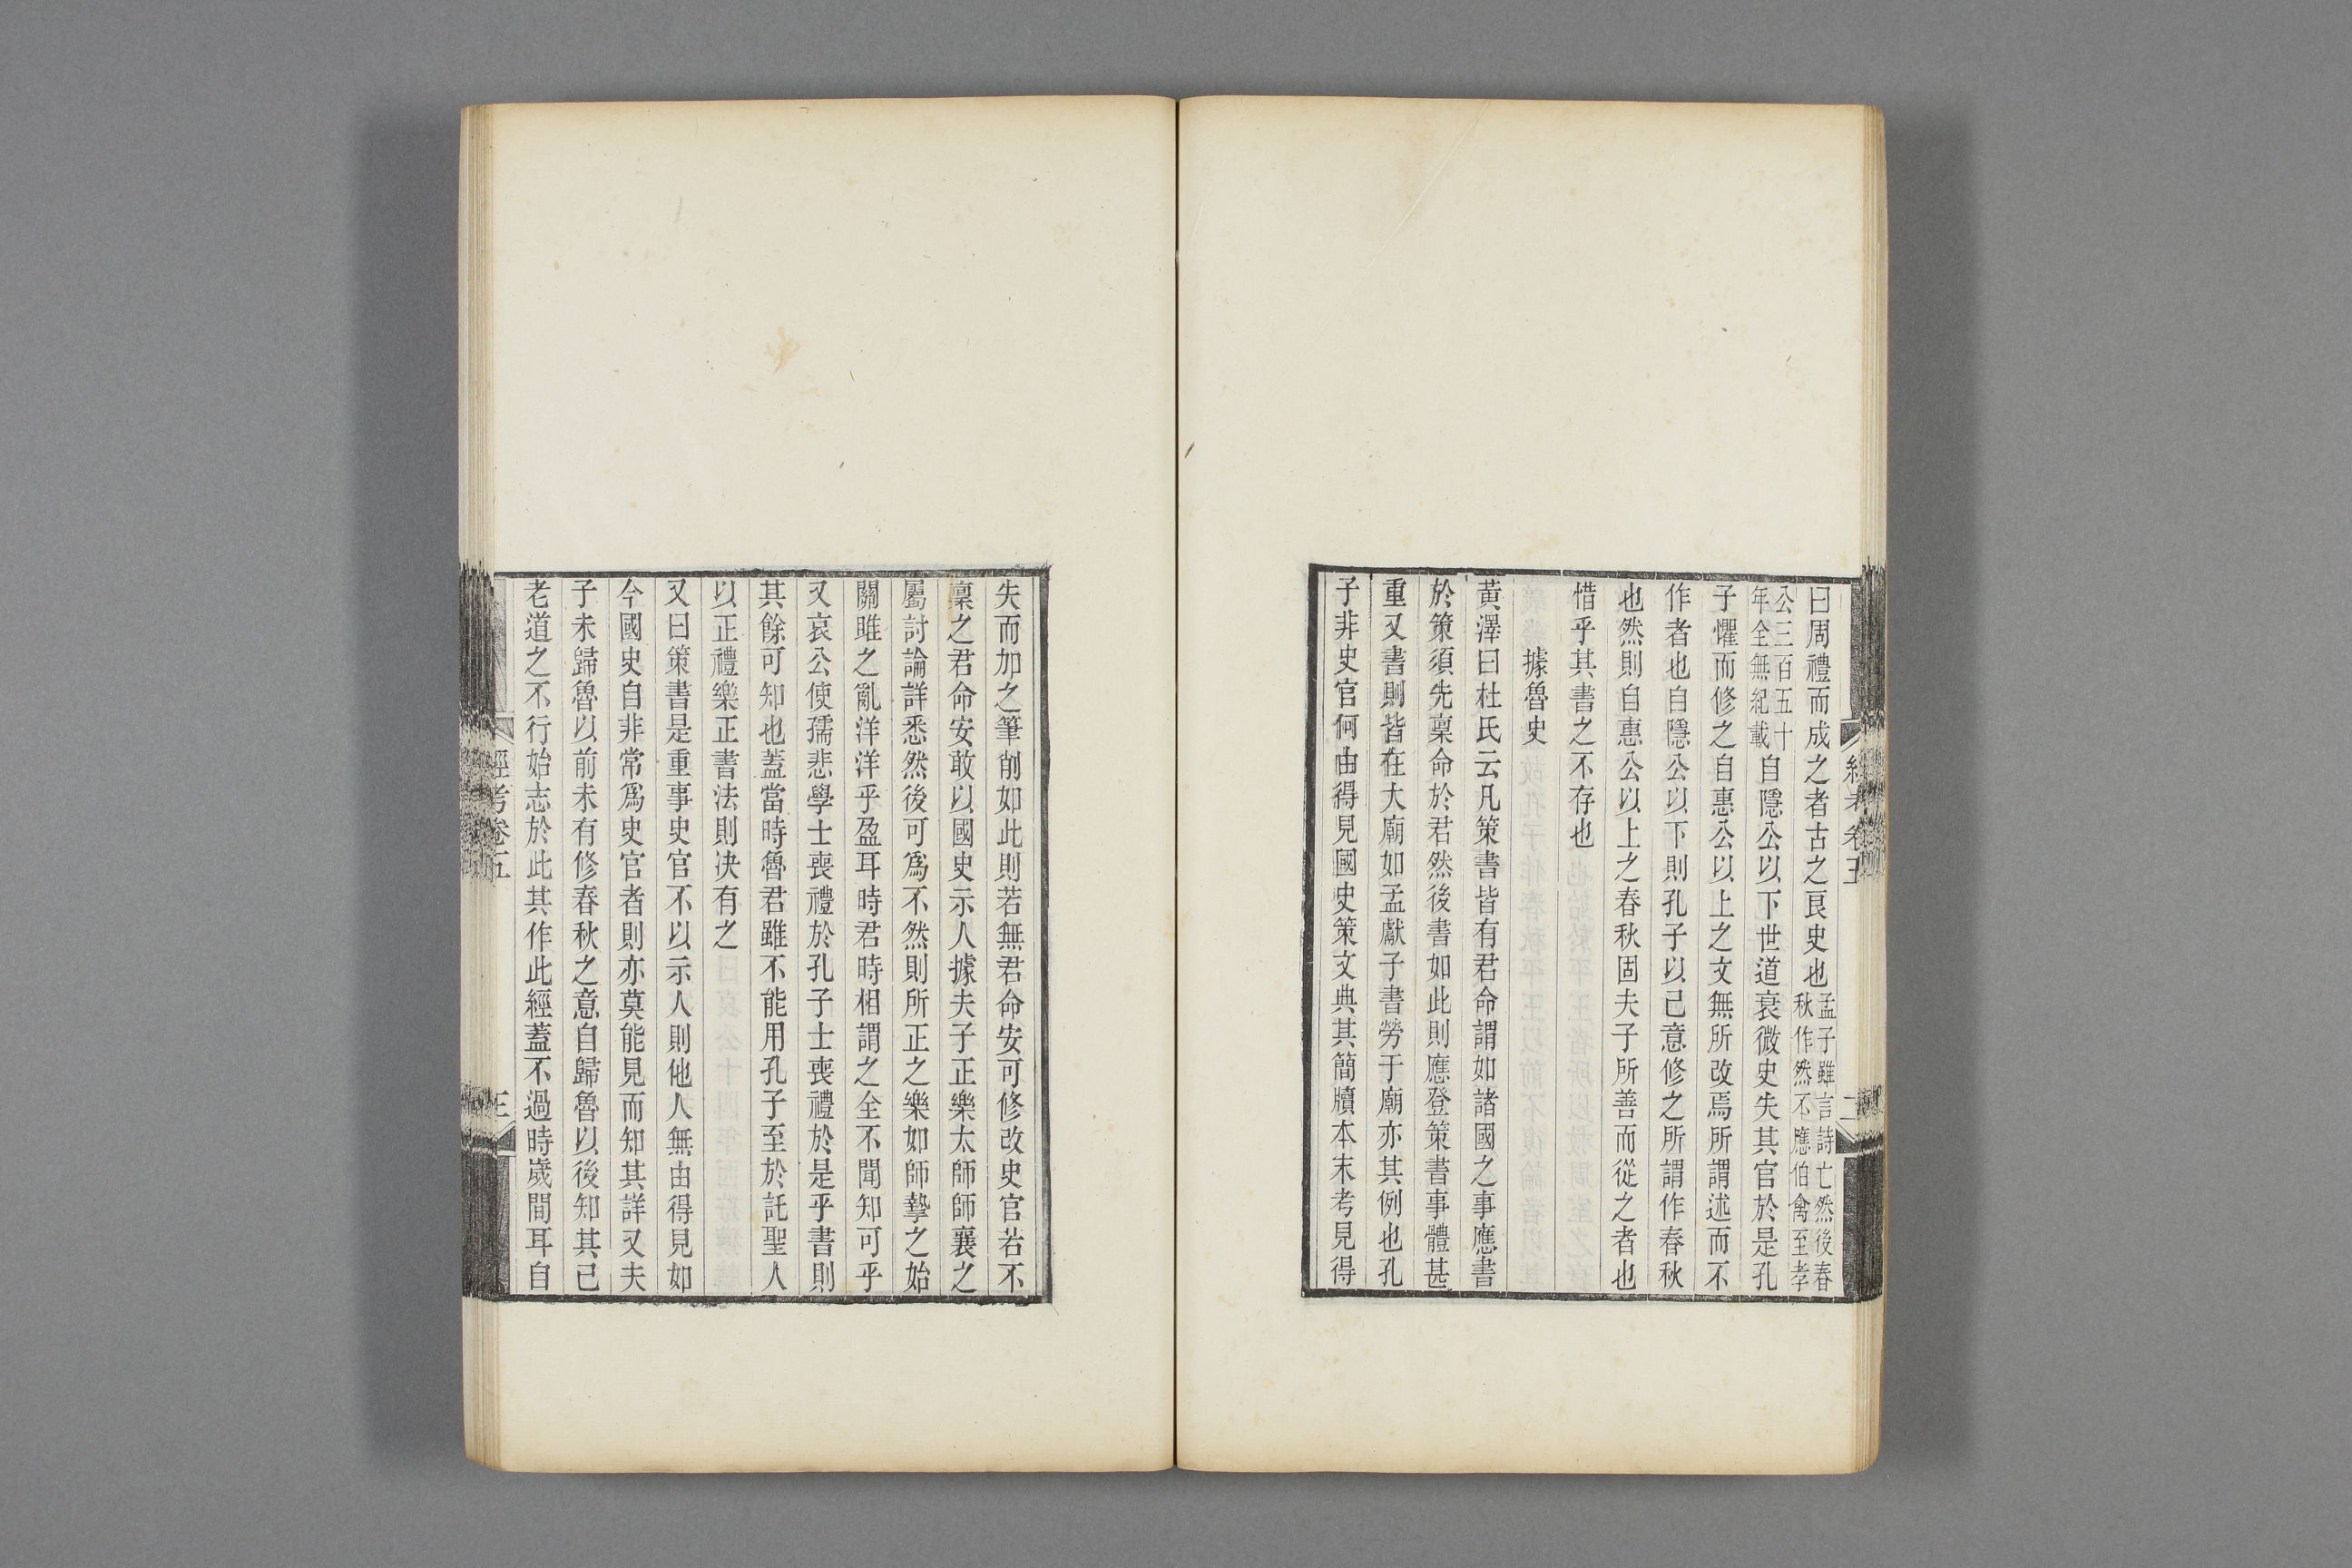 曰周禮而成之者古之良史也孟子雖言詩亡然後春秋作然不應伯禽至孝
公三百五十年全無紀載自隱公以下世道衰微史失其官於是孔
子懼而修之自惠公以上之文無所改焉所謂述而不
作者也自隱公以下則孔子以己意修之所謂作春秋
也然則自惠公以上之春秋固夫子所善而從之者也
惜乎其書之不存也
據魯史
黃澤曰杜氏云凡策書皆有君命謂如諸國之事應書
於策須先稟命於君然後書如此則應登策書事體甚
重又書則皆在大廟如孟獻子書勞于廟亦其例也孔
子非史官何由得見國史策文與其簡牘本末考見得
失而加之筆削如此則若無君命安可修改史官若不
稟之君命安敢以國史示人據夫子正樂太師師襄之
屬討論詳悉然後可爲不然則所正之樂如師摯之始
關雎之亂洋洋乎盈耳時君時相謂之全不聞知可乎
又哀公使孺悲學士喪禮於孔子士喪禮於是乎書則
其餘可知也蓋當時魯君雖不能用孔子至於託聖人
以正禮樂正書法則决有之
又曰策書是重事史官不以示人則他人無由得見如
今國史自非常爲史官者則亦莫能見而知其詳又夫
子未歸魯以前未有修春秋之意自歸魯以後知其已
老道之不行始志於此其作此經蓋不過時歲間耳自
經考卷五
三